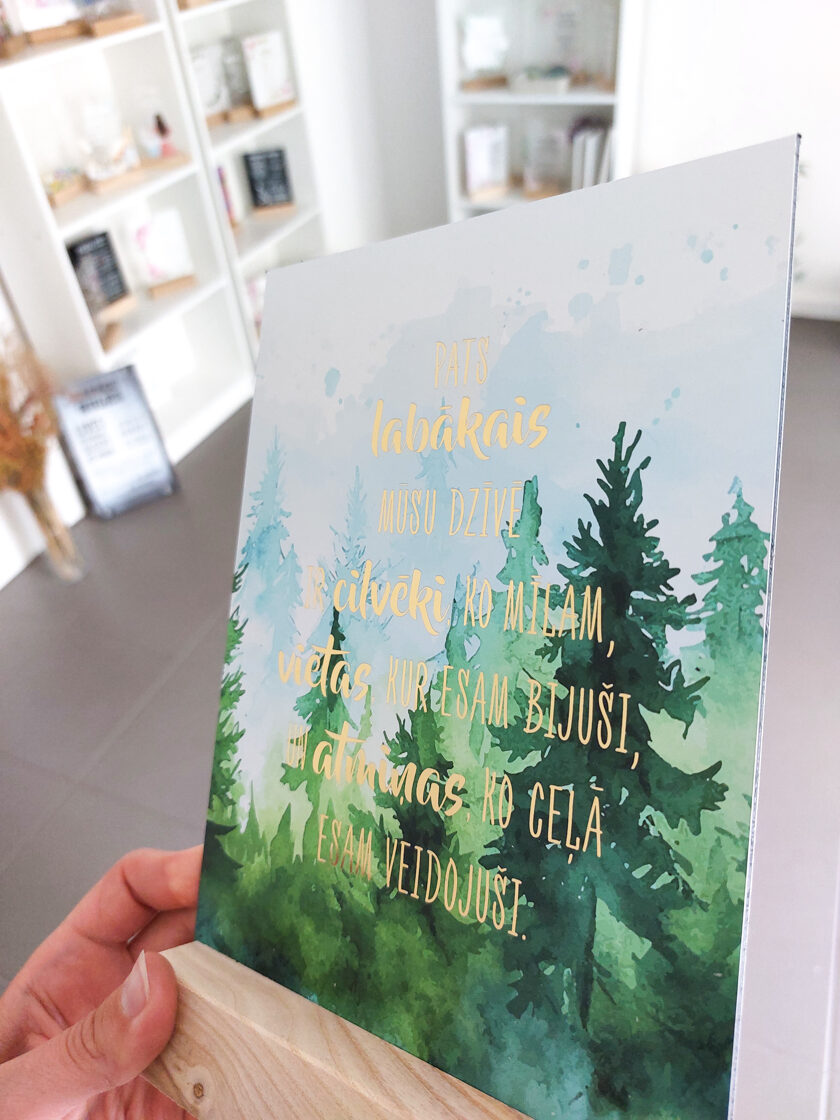 PATS
labākais
MŪSU DZĪVĒ
IR cilvēki, KO MĪLAM,
vietas, KUR ESAM BIJUŠI,
UN atmiņas, KO CEĻĀ
ESAM VEIDOJUŠI.